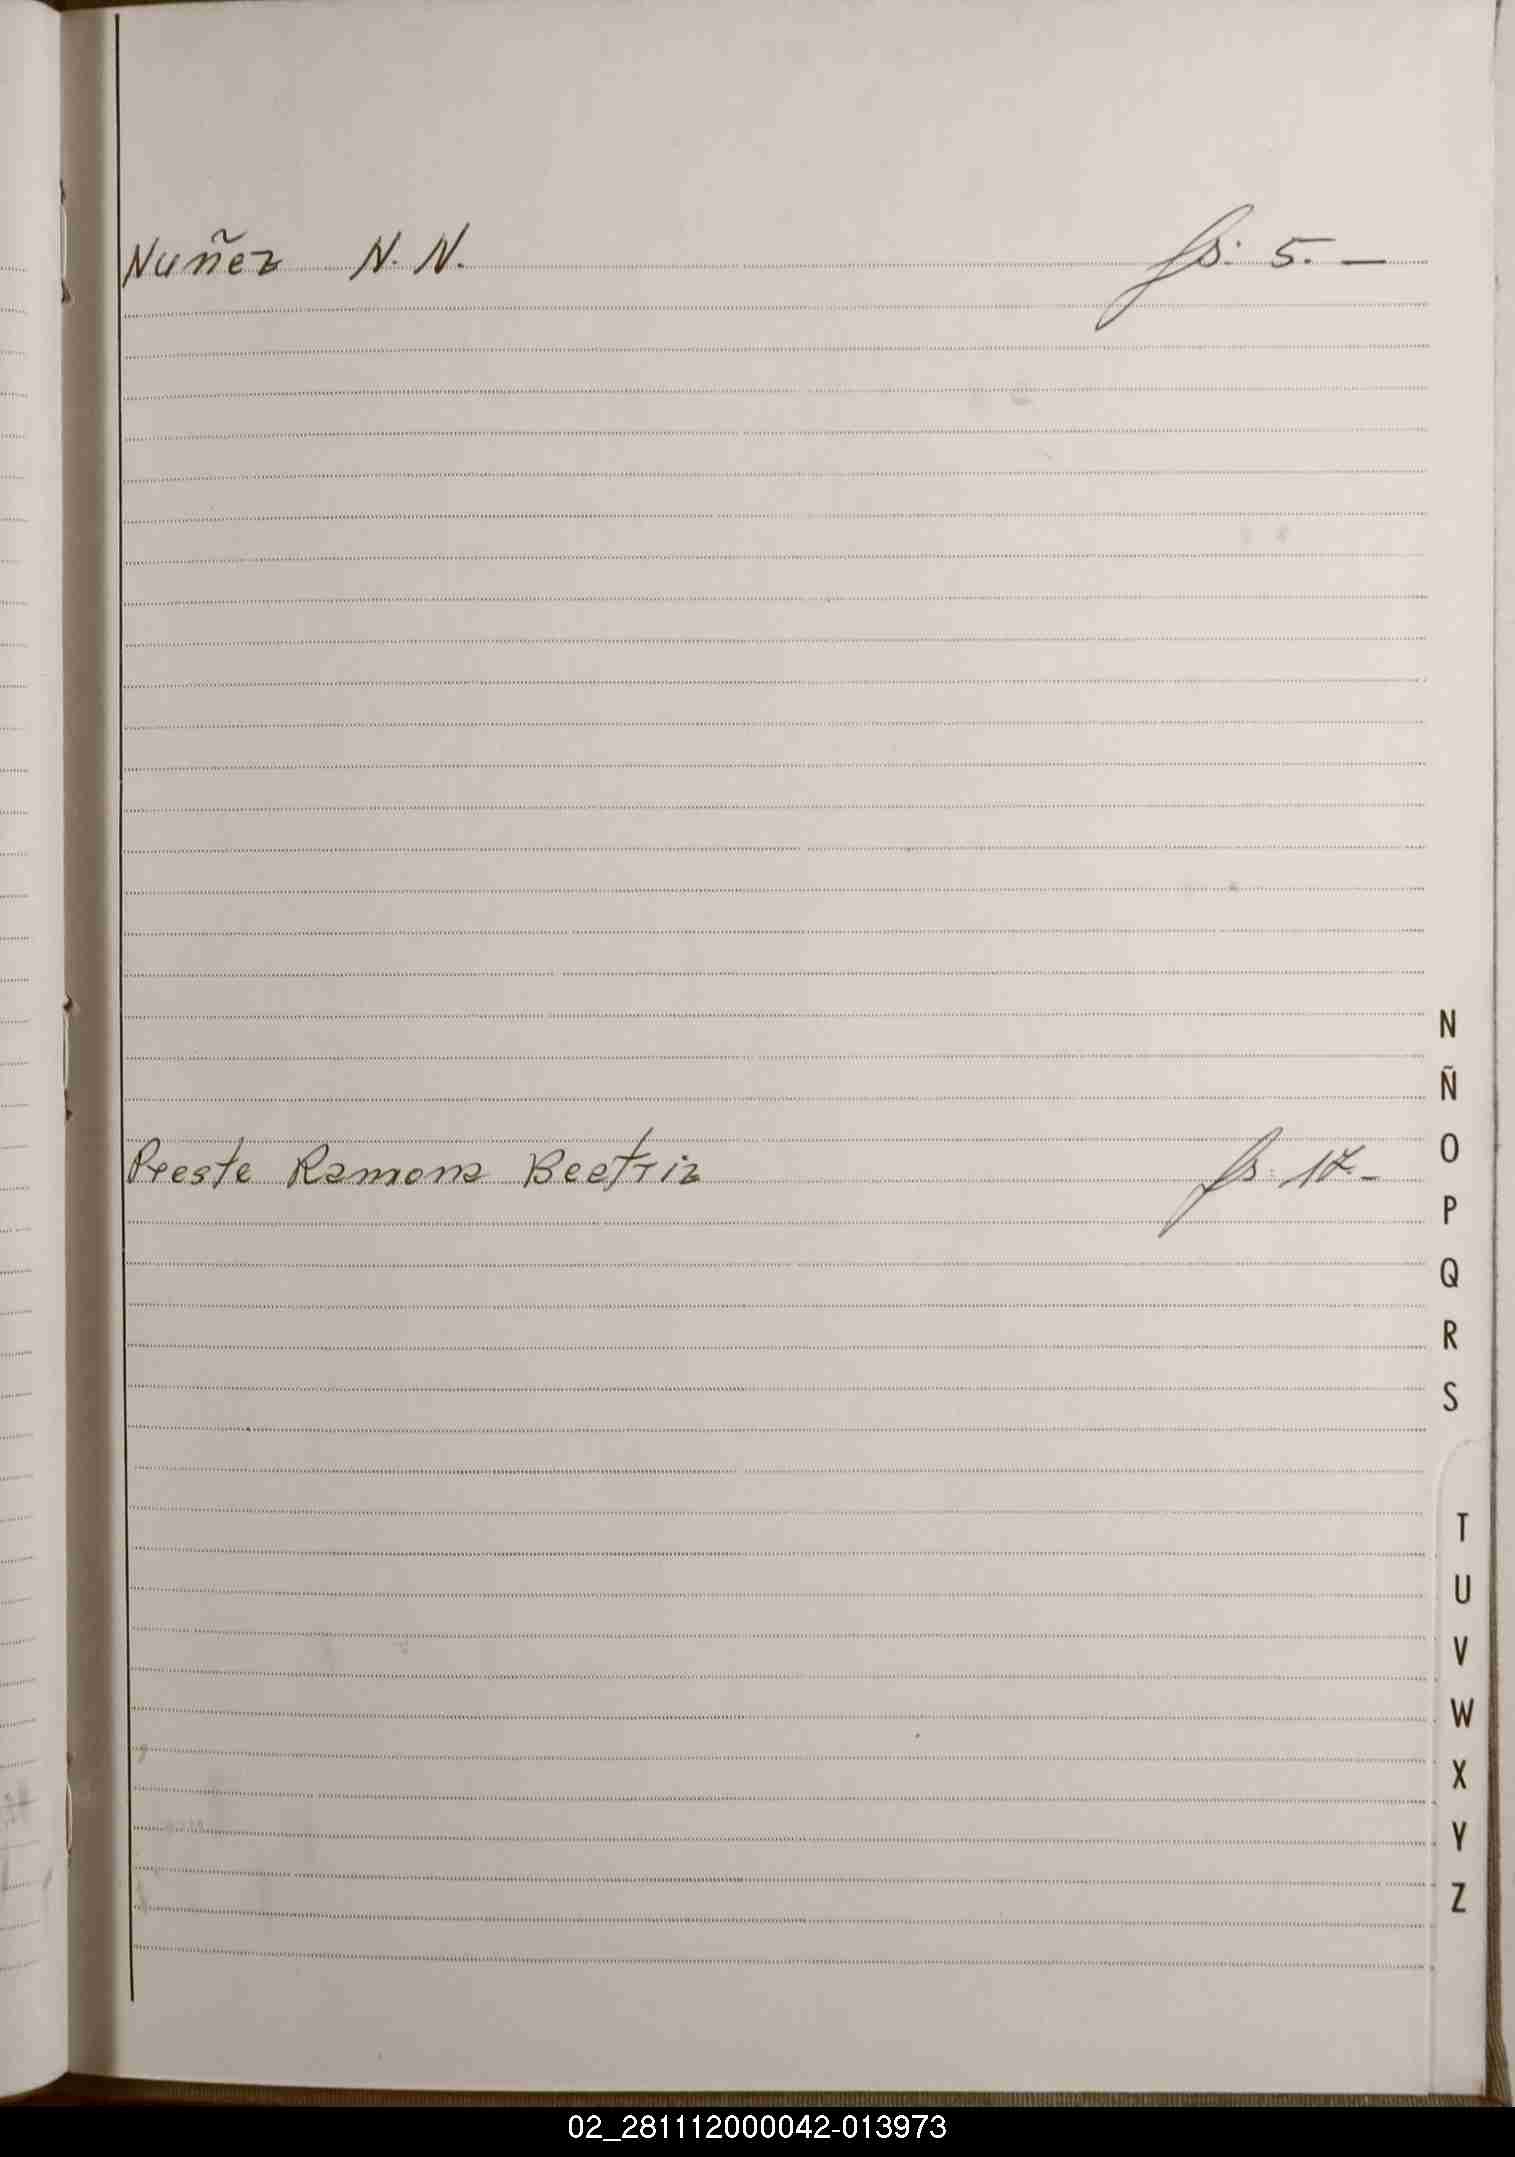 Nuñez N. N. fs: 5. —
Preste Ramona Beatriz fs: 17.-
N
Ñ
O
P
Q
R
S
T
U
V
W
X
Y
Z
02_281112000042-013973